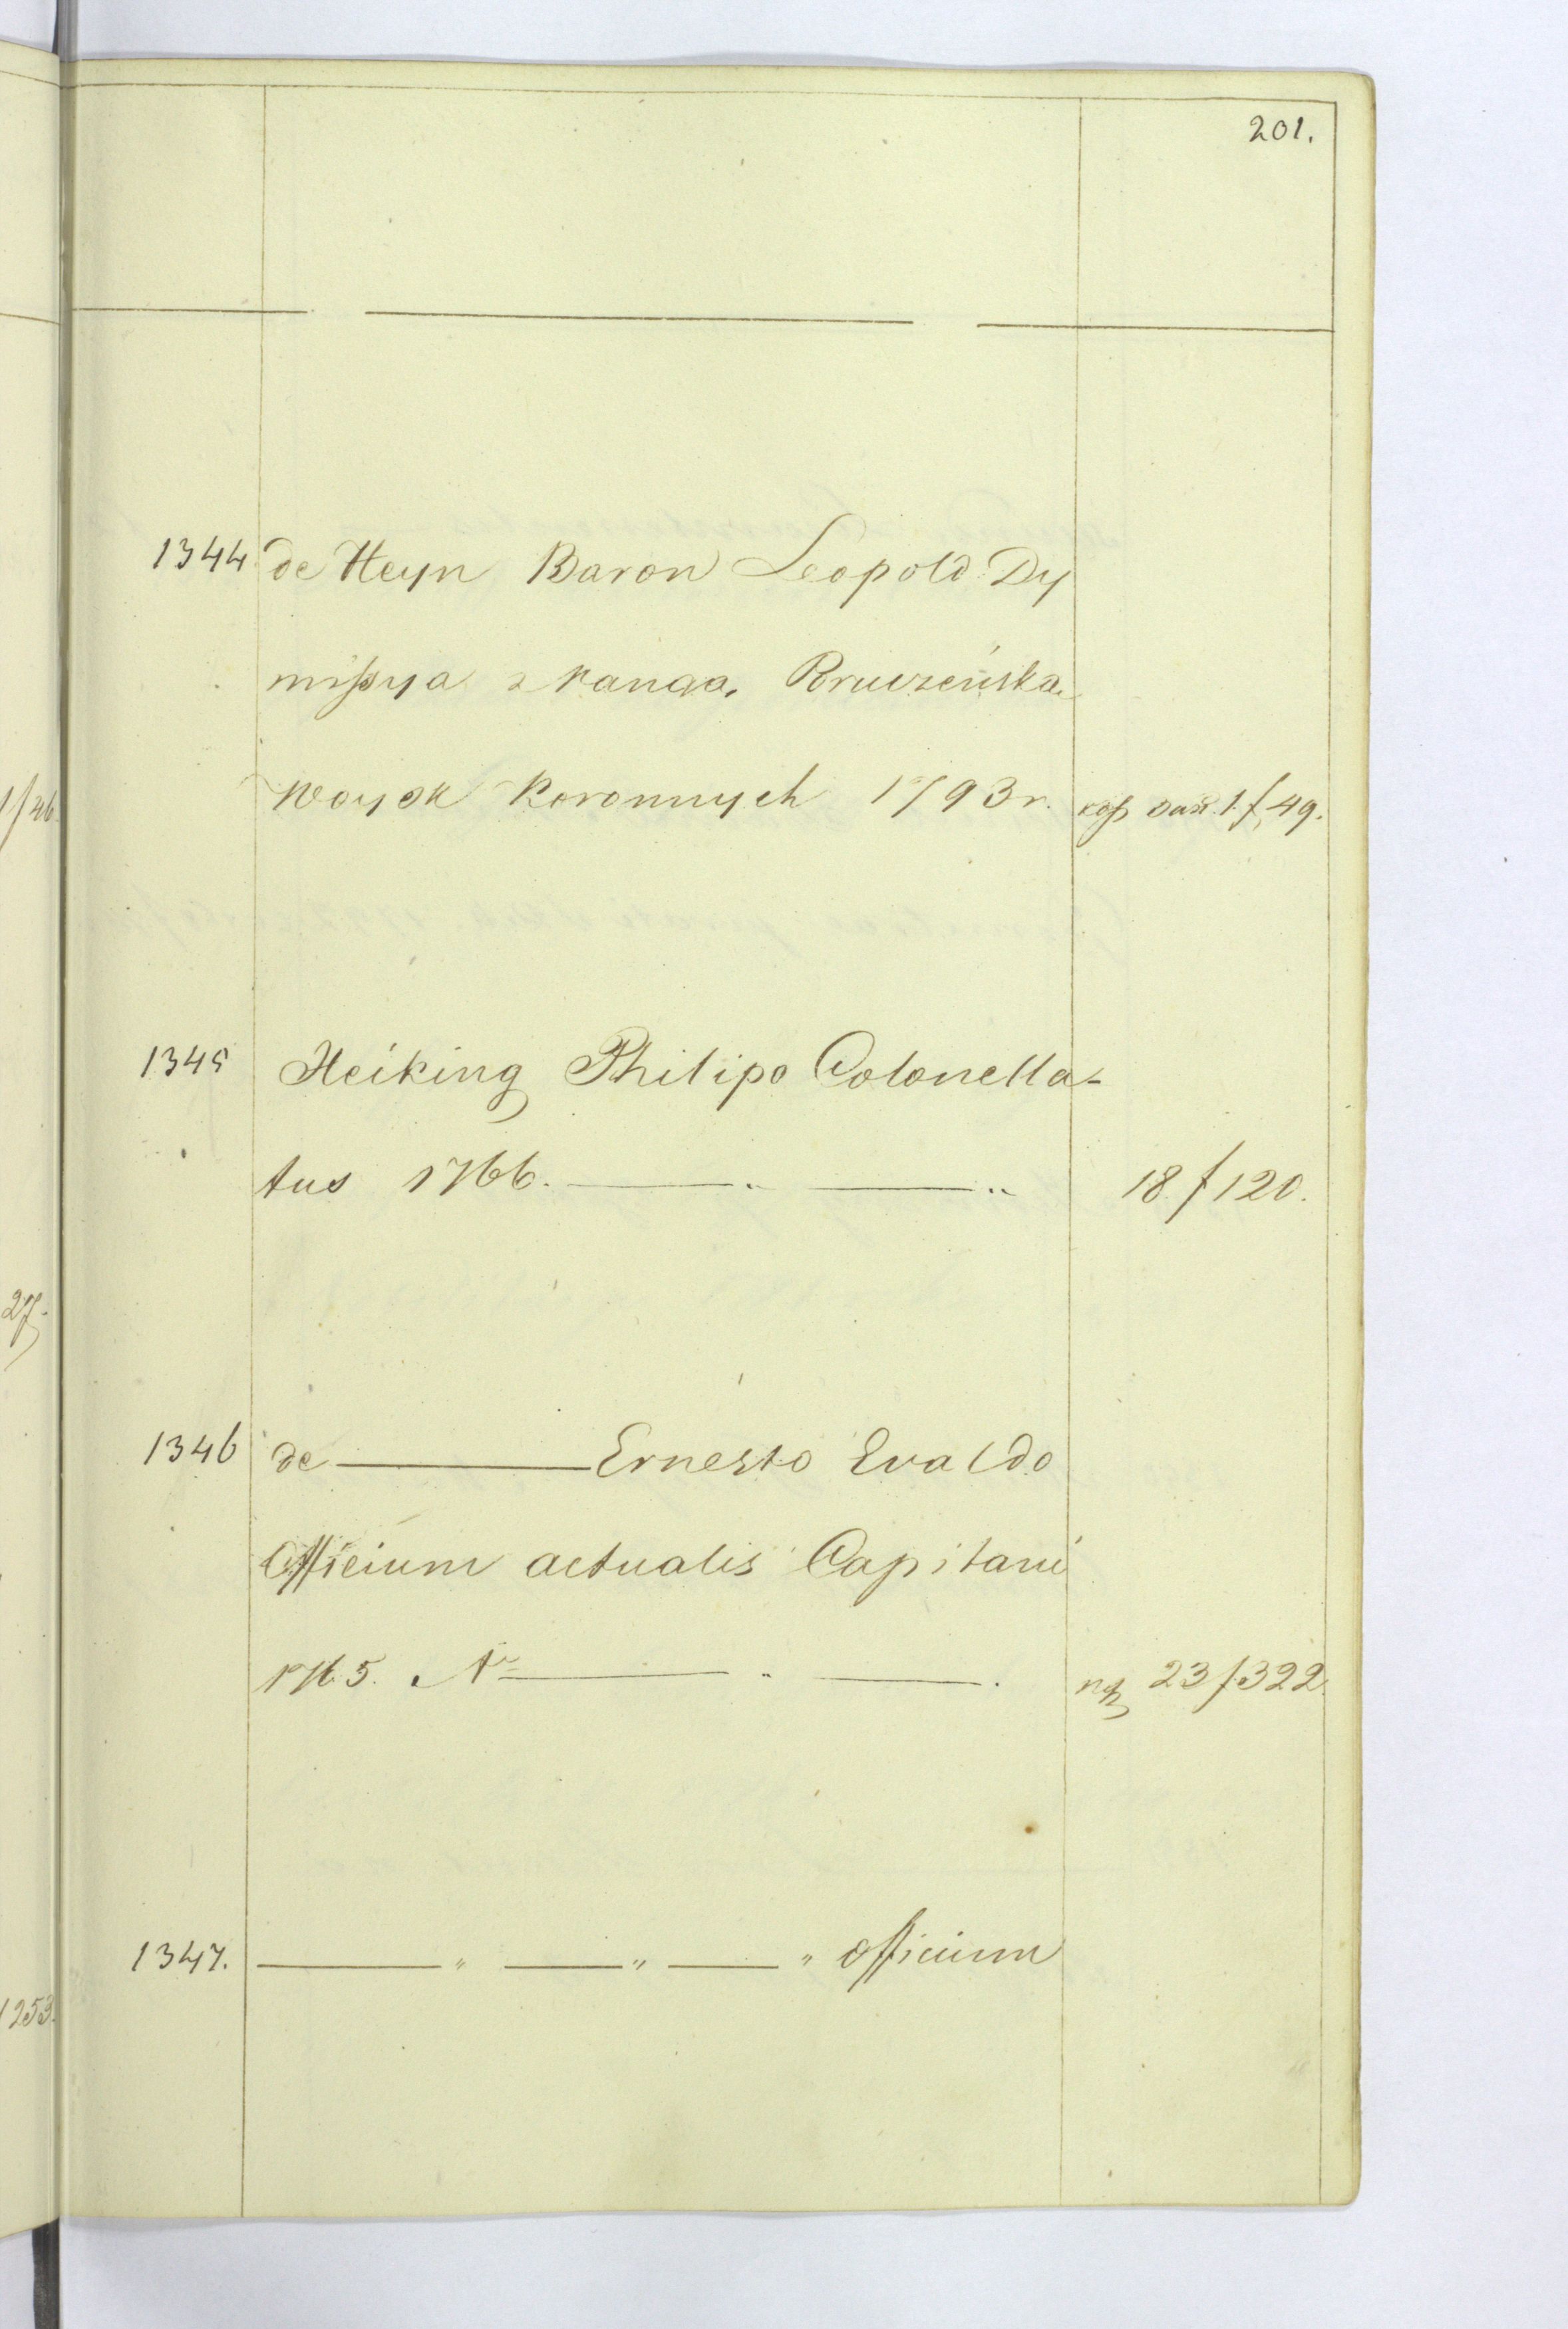 201.
1344 de Heyn Baron Leopold Dy
missya z rangą
Woysk Koronnych 1793 r. 1 f 49.
1345 Heiking Philipo Colonella-
tus 1766. — " — " 18 f 120.
1346 de — Ernesto Evaldo
Officium actualis Capitanei
1765. — " — . 23 f 322.
1347. — " — " — " officium
1/46.
27.
1253.